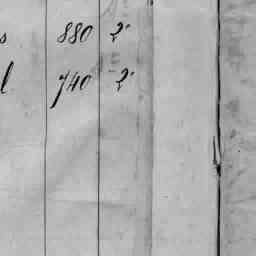 s 880 2'
l 740 2'